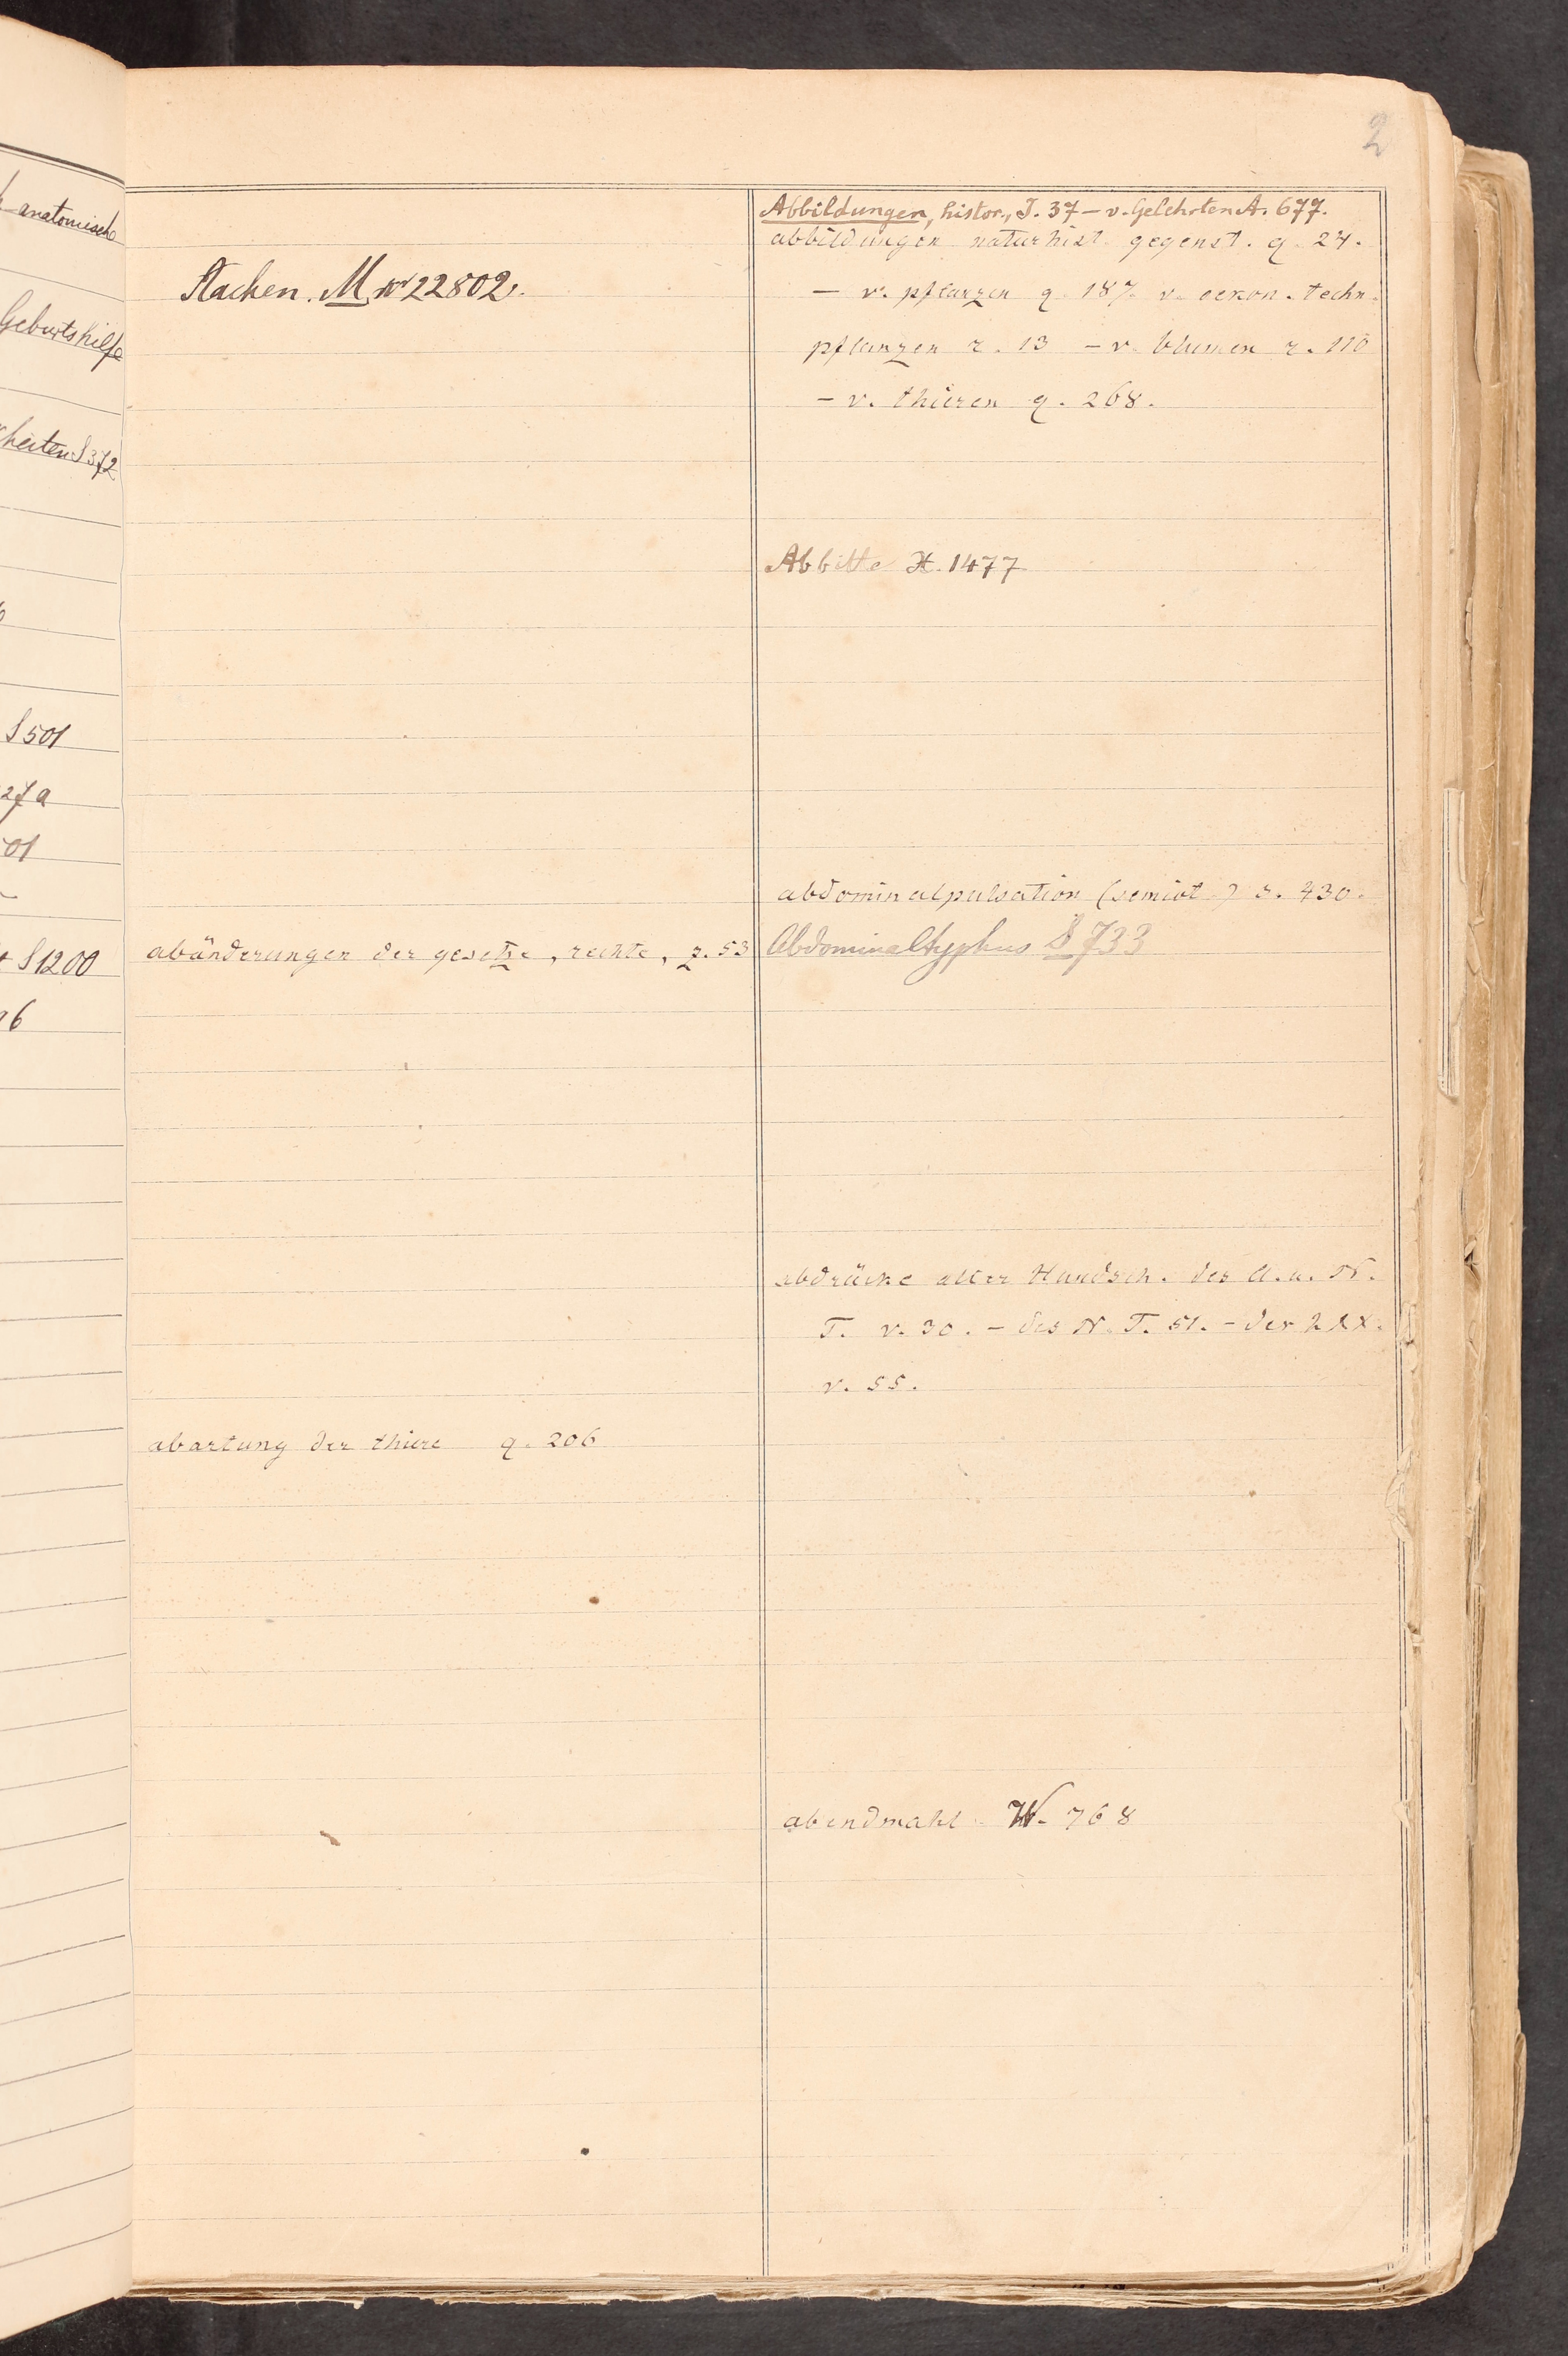 anatomische
Geburtshilfe
heiten S 372
S 501
27a
01
S 1200
96
2
Aachen. M. N° 22802.
abänderungen der gesetze, rechte, z. 53
abartung der thiere q. 206
Abbildungen, histor., J. 37 – v. Gelehrten A. 677.
abbildungen naturhist. gegenst. q. 24.
– v. pflanzen q. 187. v. oekon. techn.
pflanzen r. 13 – v. blumen r. 110
– v. thieren q. 268.
Abbitte H. 1477
abdominalpulsation (semiot.) s. 430.
Abdominaltyphus S 733
abdrücke alter Handsch. des A. u. N.
T. v. 30. – des N. T. 51. – der LXX.
v. 55.
abendmahl W. 768